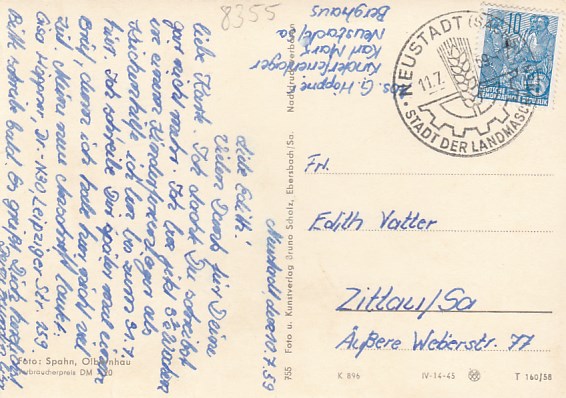 8355
Abs. G. Hoppe
Kinderferienlager
Karl Marx
Neustadt/Sa
Berghaus
Neustadt, den 10.7.59
Liebe Edith!
Vielen Dank für Deine
liebe Karte. Ich dachte Du schreibst
gar nicht mehr. Ich bin jetzt 3 Wochen
in einem Kinderferienlager als
helferin bis zum 31.7.
hier. Ich schreibe Dir später mal einen
Brief, denn ich habe hier nicht viel
Zeit. Meine neue Anschrift lautet:
Gisa Hoppe, Dr. - N30 Leipziger Str. 129.
Bitte schreibe bald. Es grüßt Dich herzlichst
NEUSTADT (SACHS)
11.7.59
STADT DER LANDMASCH
10
Fr.
Edith Vatter
Zittau/Sa
Äußere Weberstr. 77
Foto: Spahn, Olbernhau
Verbraucherpreis DM 0,20
755 Foto u. Kunstverlag Bruno Scholz, Ebersbach/Sa.
Nachdruck verboten
K 896
IV-14-45
T 160/58